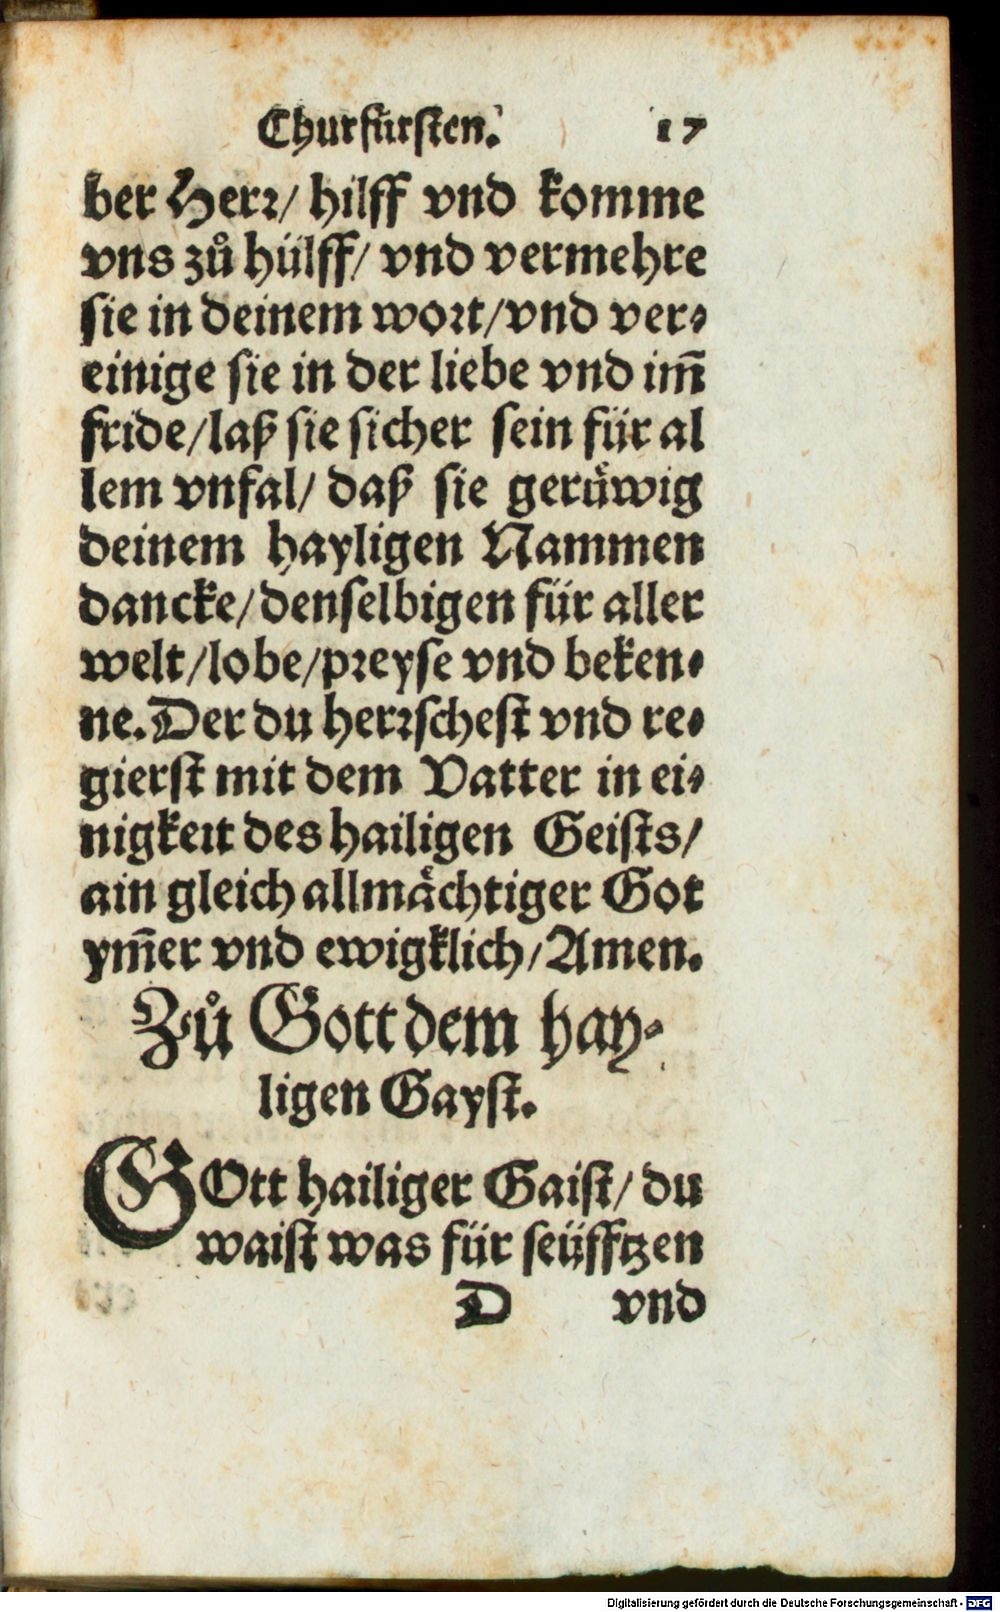 Churfürsten. 17
ber Herr/ hilff vnd komme
vns zů hülff/ vnd vermehre
sie in deinem wort/vnd ver⸗
einige sie in der liebe vnd im̃
fride/laß sie sicher sein für al
lem vnfal/ daß sie gerüwig
deinem hayligen Nammen
dancke/denselbigen für aller
welt/lobe/preyse vnd beken⸗
ne. Der du herrschest vnd re⸗
gierst mit dem Vatter in ei⸗
nigkeit des hailigen Geists/
ain gleich allmächtiger Got
ym̃er vnd ewigklich/Amen.
Zů Gott dem hay⸗
ligen Gayst.
GOtt hailiger Gaist/ du
waist was für seüfftzen
D vnd
Digitalisierung gefördert durch die Deutsche Forschungsgemeinschaft - DFG